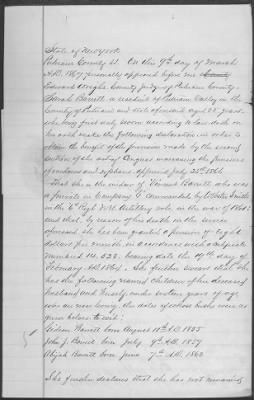 State of New York
Putnam County SS. On this 9th day of March
A.D. 1867, personally appeared before me
Edward Wright County Judge of Putnam County,
Sarah Barrett a resident of Putnam Valley in the
County of Putnam and State aforesaid aged 28 years,
who being first duly sworn according to law doth on
her oath make the following declaration in order to
obtain the benefit of the provision made by the second
section of the act of Congress increasing the pensions
of widows and orphans approved July 25th 1866
That she is the widow of Barrett who was
a private in Company G commanded by Smith
in the 6th Regt N.Y. Artillery Vols, in the war of 1861:
and that, by reason of his death in the service
aforesaid, she has been granted a pension of eight
dollars per month, in accordance with certificate
numbered 14,528. bearing date the 19th day of
February A.D. 1864. She further swears that she
has the following named Children of her deceased
husband and herself, under sixteen years of age
who are now living, the dates of whose births were as
given below to wit:
Barrett born August 11th A.D. 1855
John J. Barrett born July 9th A.D. 1857
Abijah Barrett born June 7th A.D. 1860
She further declares that she has not remarried